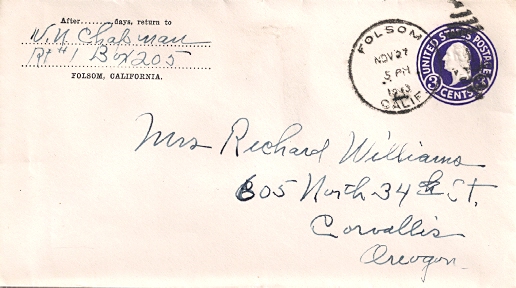 After.........days, return to
W. N. Chapman
Rt #1 Box 205
FOLSOM, CALIFORNIA.
FOLSOM
NOV 27
5 PM
1943
CALIF
UNITED STATES POSTAGE
3 CENTS 3
Mrs Richard Williams
605 North 34th St.
Corvallis
Oreogon